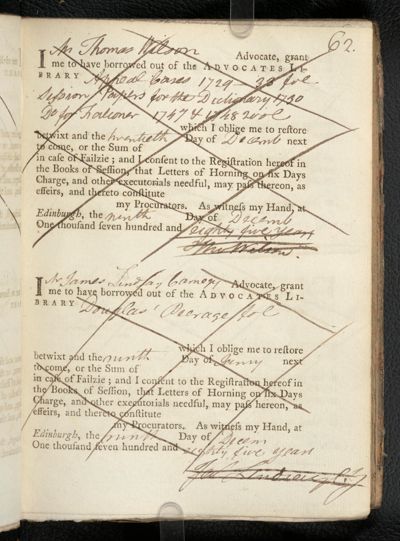 62.
I Mr Thomas Wilson Advocate, grant
me to have borrowed out of the ADVOCATES LI-
BRARY Appeal Cases 1729 fol
Session Papers for the Dictionary 1730
Do for Falconer 1747 & 1748 2 vol
which I oblige me to restore
betwixt and the twentieth Day of Decemb next
to come, or the Sum of
in case of Failzie; and I consent to the Registration hereof in
the Books of Session, that Letters of Horning on six Days
Charge, and other executorials needful, may pass thereon, as
effeirs, and thereto constitute
my Procurators. As witness my Hand, at
Edinburgh, the ninth Day of Decemb
One thousand seven hundred and eighty five years
Tho Wilson
I Mr James Lindsay Carnegy Advocate, grant
me to have borrowed out of the ADVOCATES LI-
BRARY Douglas' Peerage fol
which I oblige me to restore
betwixt and the ninth Day of next
to come, or the Sum of
in case of Failzie; and I consent to the Registration hereof in
the Books of Session, that Letters of Horning on six Days
Charge, and other executorials needful, may pass hereon, as
effeirs, and thereto constitute
my Procurators. As witness my Hand, at
Edinburgh, the ninth Day of Decem
One thousand seven hundred and eighty five years